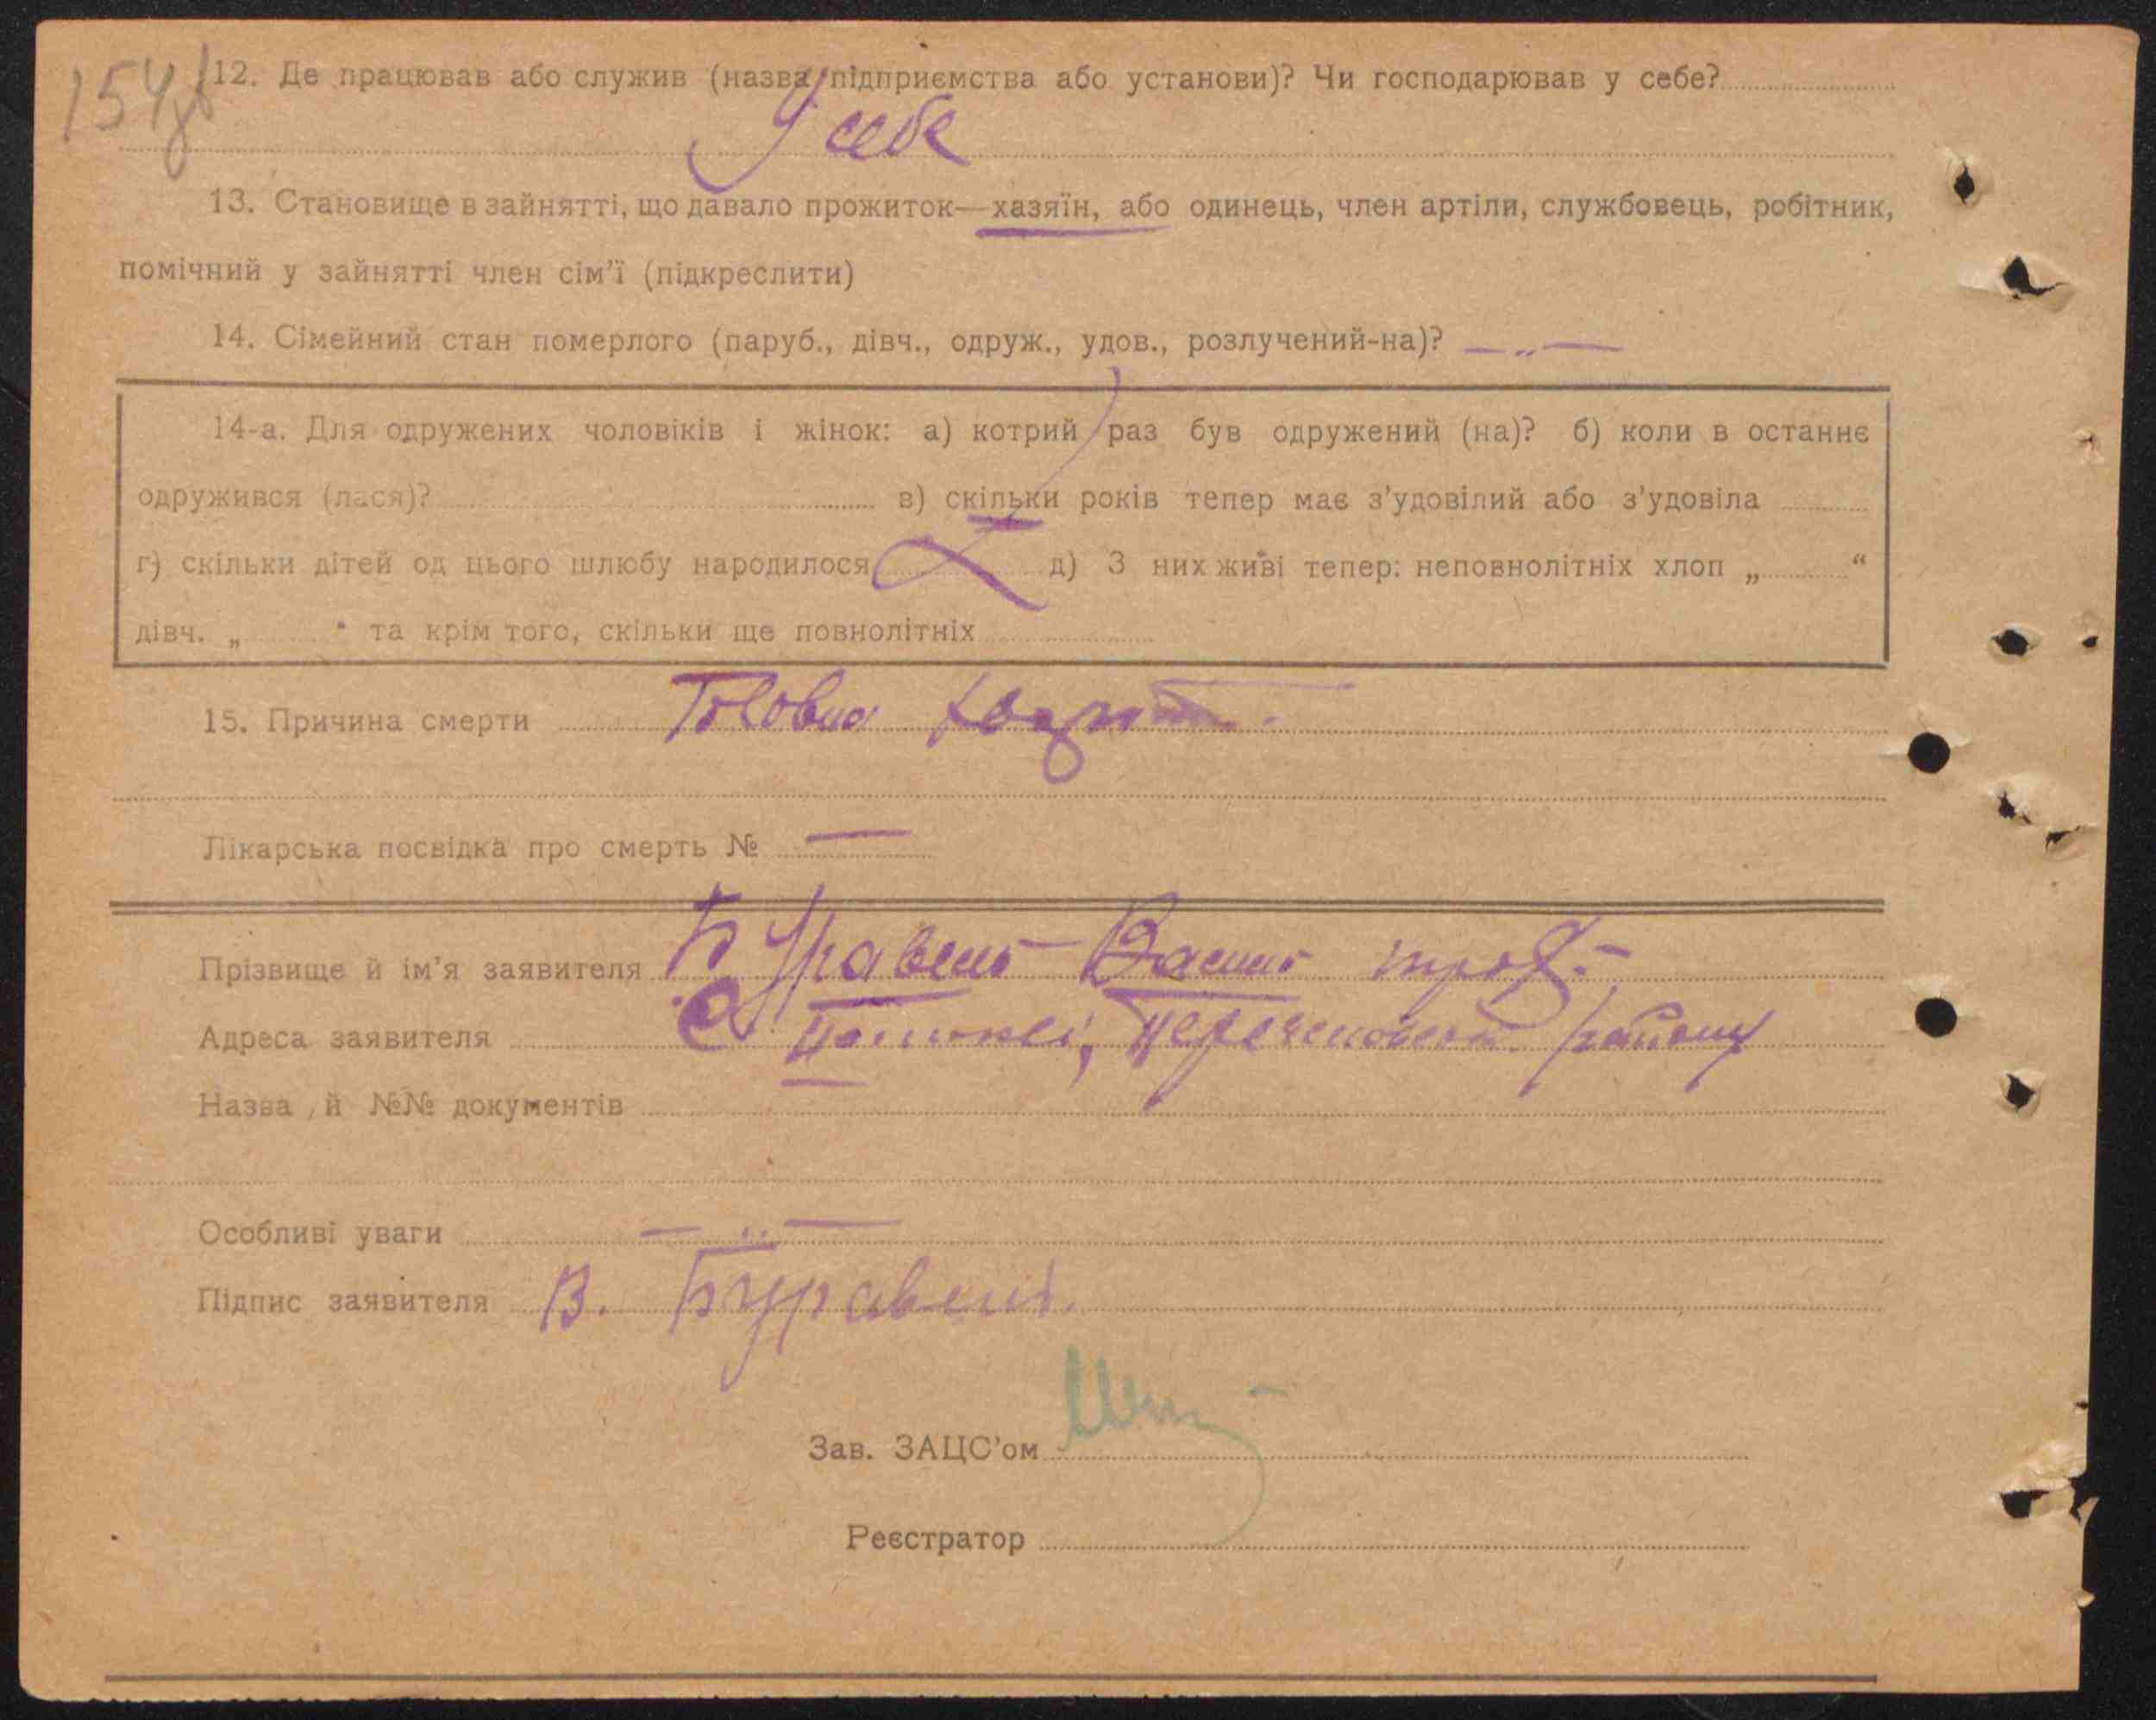 154
12. Де працював або служив (назва підприємства або установи)? Чи господарював у себе?
У себе
13. Становище в зайнятті, що давало прожиток—хазяїн, або одинець, член артіли, службовець, робітник,
помічний у зайнятті член сім'ї (підкреслити)
14. Сімейний стан померлого (паруб., дівч., одруж., удов., розлучений-на)? — „ —
14-а. Для одружених чоловіків і жінок: а) котрий раз був одружений (на)? б) коли в останнє
одружився (лася)? в) скільки років тепер має з'удовілий або з'удовіла
г) скільки дітей од цього шлюбу народилося д) З них живі тепер: неповнолітніх хлоп „ “
дівч. „ “ та крім того, скільки ще повнолітніх
15. Причина смерти Головна
Лікарська посвідка про смерть № —
Прізвище й ім'я заявителя Буравель Василь
Адреса заявителя С. району
Назва й №№ документів
Особливі уваги — „ —
Підпис заявителя В. Буравель.
Зав. ЗАЦС'ом
Реєстратор